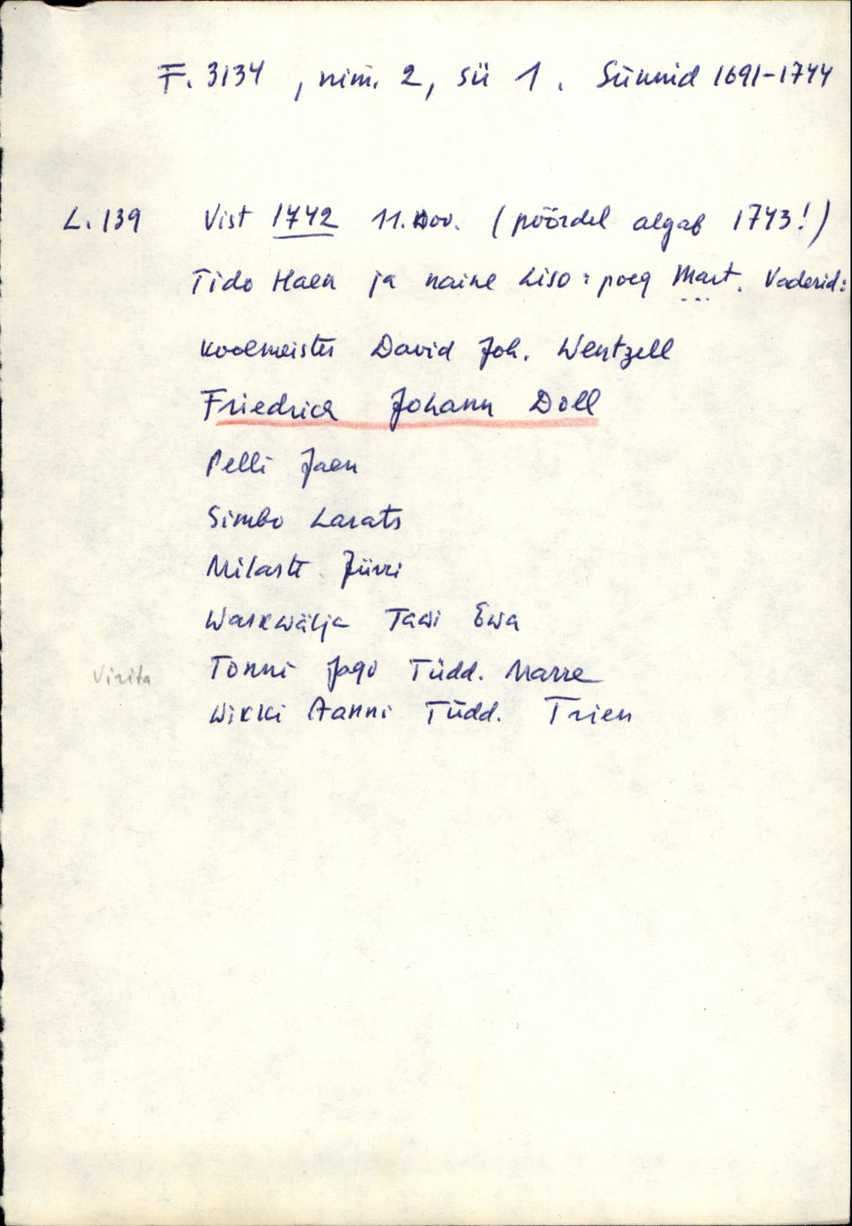 F. 3134, nim. 2, sü 1. Sünnid 1691-1744
L. 139 Vist 1742 11. nov. (pöördel algab 1743!)
Tido Haen ja naine Liso: poeg Mart. Vaderid:
Koolmeister David Joh. Wentzell
Friedrich Johann Doll
Pelli Jaen
Simbo Larats
Milaste Jürri
Waskwälja Tawi Ewa
Virita Tonni Jago Tüdd. Marre
Wikki Hanni Tüdd. Trien